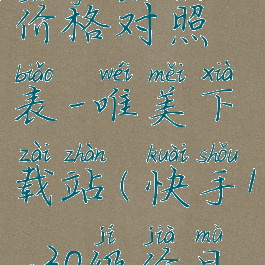 价格对照
biǎo wéi měi xià
表-唯美下
zài zhàn kuài shǒu
载站(快手1
jí jià mù
30级价目